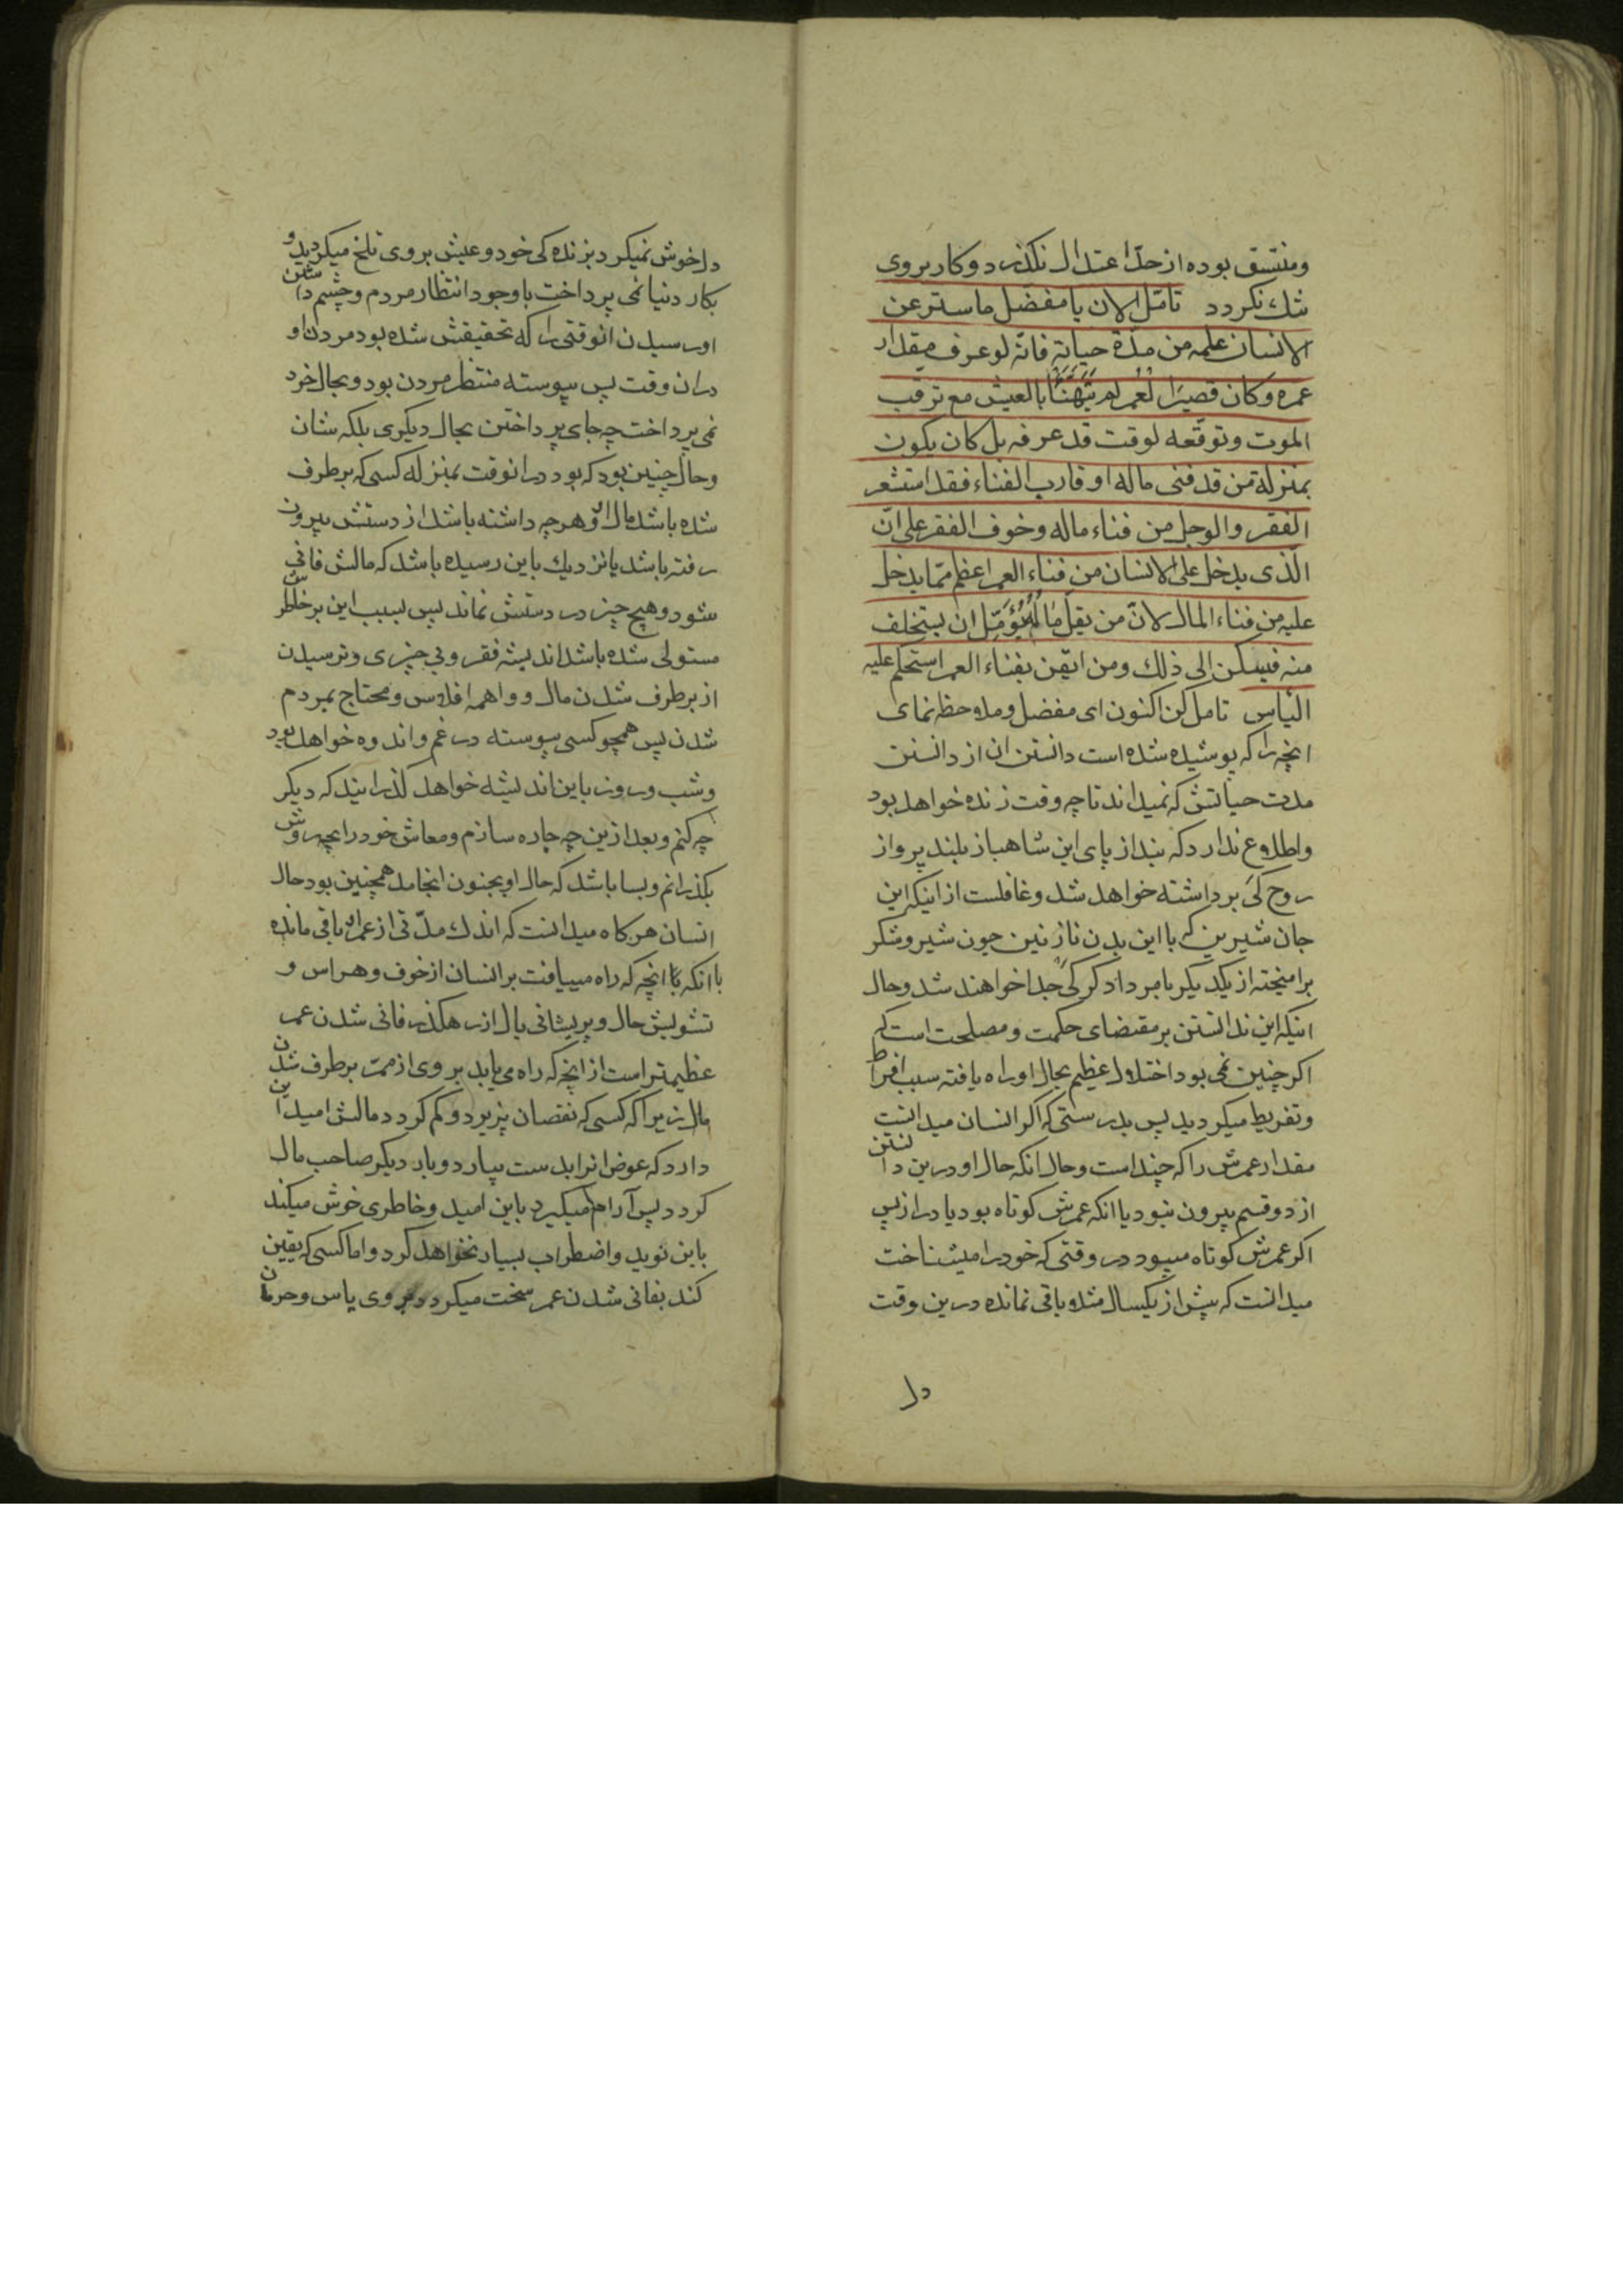 ومنتسق بوده از حدّ اعتدال نکذرد و کار بروی
تنك نکردد تامّل الان یا مفضّل ما ستر عن
الانسان علمه من مدّة حیاته فانّه لو عرف مقدار
عمره وکان قصیرَ العُمر لم یَتَهَنَّأ بالعیش مع ترقب
الموت وتوقّعه لوقت قد عرفه بل کان یکون
بمنزلة من قد فنی ماله او قارب الفناء فقد استشعر
الفقر والوجل من فناء ماله وخوف الفقر علی انّ
الّذی یدخل علی الانسان من فناء العمر اعظم ممّا یدخل
علیه من فناء المال لانّ من یقلّ مالُهُ یُؤَمِّل ان یستخلف
منه فیسکن الی ذلك ومن ایقن بفناء العمر استحکم علیه
الیأس تامل کن اکنون ای مفضل وملاحظه نمای
انچه را که پوشیده شده است دانستن ان از دانستن
مدت حیاتش که نمیداند تا چه وقت زنده خواهد بود
واطلاع ندارد که بند از پای این شاهباز بلند پرواز
روح کَی برداشته خواهد شد وغافلست از اینکه این
جان شیرین که با این بدن نازنین چون شیر وشکر
برامیخته از یکدیکر بامر دادکر کَی جدا خواهند شد وحال
اینکه این ندانستن بر مقتضای حکمت ومصلحت است که
اکر چنین نمی بود اختلال عظیم بحال او راه یافته سبب افراط
وتفریط میکردید پس بدرستی که اکر انسان میدانست
مقدار عمرش را که چند است وحال انکه حال او درین دانستن
از دو قسم بیرون نبود یا انکه عمرش کوتاه بود یا دراز پس
اکر عمرش کوتاه میبود در وقتی که خود را میشناخت
میدانست که بیش از یکسال مثلا باقی نمانده درین وقت
دل
دلخوش نمیکرد بزنده کی خود وعیش بروی تلخ میکردید و
بکار دنیا نمی پرداخت با وجود انتظار مردم وچشم داشتن
او رسیدن انوقتی را که تحقیقش شده بود مردن او
دران وقت پس پیوسته منتظر مردن بود وبحال خرد
نمی پرداخت چه جای پرداختن بحال دیکری بلکه شان
وحال چنین بود که بود درانوقت بمنزله کسی که برطرف
شده باشد مال او وهرچه داشته باشد از دستش بیرون
رفته باشد یا نزدیك باین رسیده باشد که مالش فانی
شود وهیچ چیز در دستش نماند پس بسبب این بر خاطرش
مستولی شده باشد اندیشه فقر وبی چیزی وترسیدن
از برطرف شدن مال وواهمه افلاس ومحتاج بمردم
شدن پس همچو کسی پیوسته در غم واندوه خواهد بود
وشب وروز باین اندیشه خواهد کذرانید که دیکر
چه کنم وبعد ازین چه چاره سازم ومعاش خود را بچه روش
بکذرانم وبسا باشد که حال او بجنون انجامد همچنین بود حال
انسان هرکاه میدانست که اندك مدّتی از عمر او باقی مانده
با انکه انچه که راه مییافت بر انسان از خوف وهراس و
تشویش حال وپریشانی بال از رهکذر فانی شدن عمر
عظیمتر است از انچه که راه می یابد بر وی از ممر برطرف شدن
مال زیرا که کسی که نقصان پزیرد وکم کردد مالش امید این
دارد که عوض انرا بدست بیارد وبار دیکر صاحب مال
کردد پس آرام میکیرد باین امید وخاطری خوش میکند
باین نوید واضطراب بسیار نخواهد کرد واما کسی که یقین
کند بفانی شدن عمر سخت میکردد بر وی یاس وحرمان